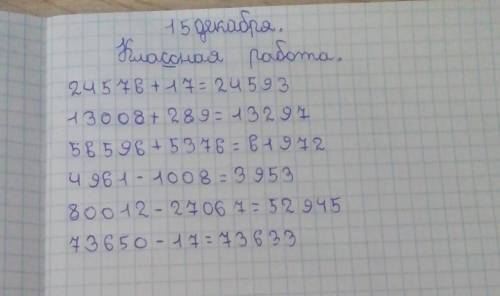 15 декабря.
Классная работа.
24576+17=24593
13008+289=13297
56596+5376=61972
4961-1008=3953
80012-27067=52945
73650-17=73633